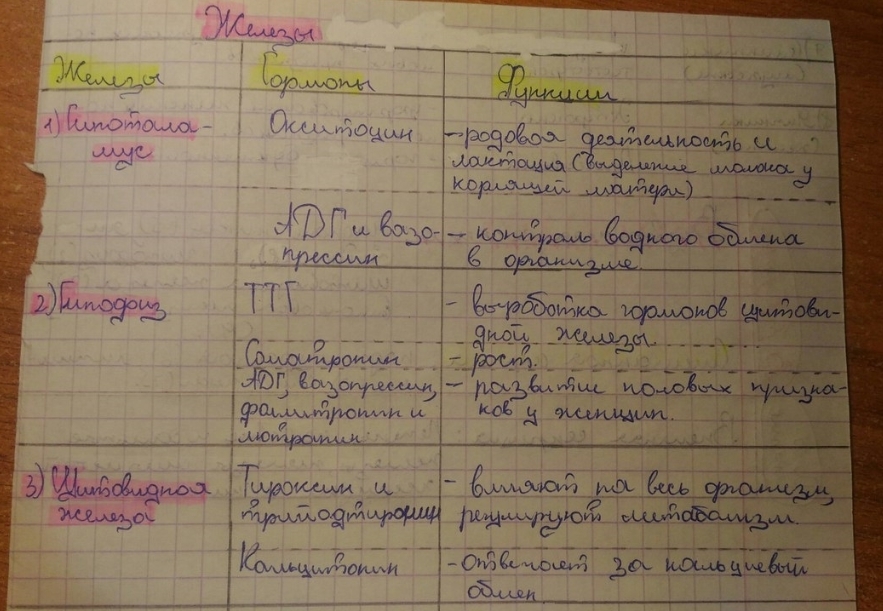 Железы
Железы Гормоны Функции
1) Гипотала- Окситоцин - родовая деятельность и
мус лактация (выделение молока у
кормящей матери)
АДГ и вазо- - контроль водного обмена
прессин в организме.
2) Гипофиз ТТГ - выработка гормонов щитови-
дной железы.
Соматропин - рост.
АДГ, вазопрессин, - развитие половых призна-
фоллитропин и ков у женщин.
лютропин
3) Щитовидная Тироксин и - влияют на весь организм,
железа регулируют метаболизм.
Кальцитонин - отвечает за кальциевый
обмен